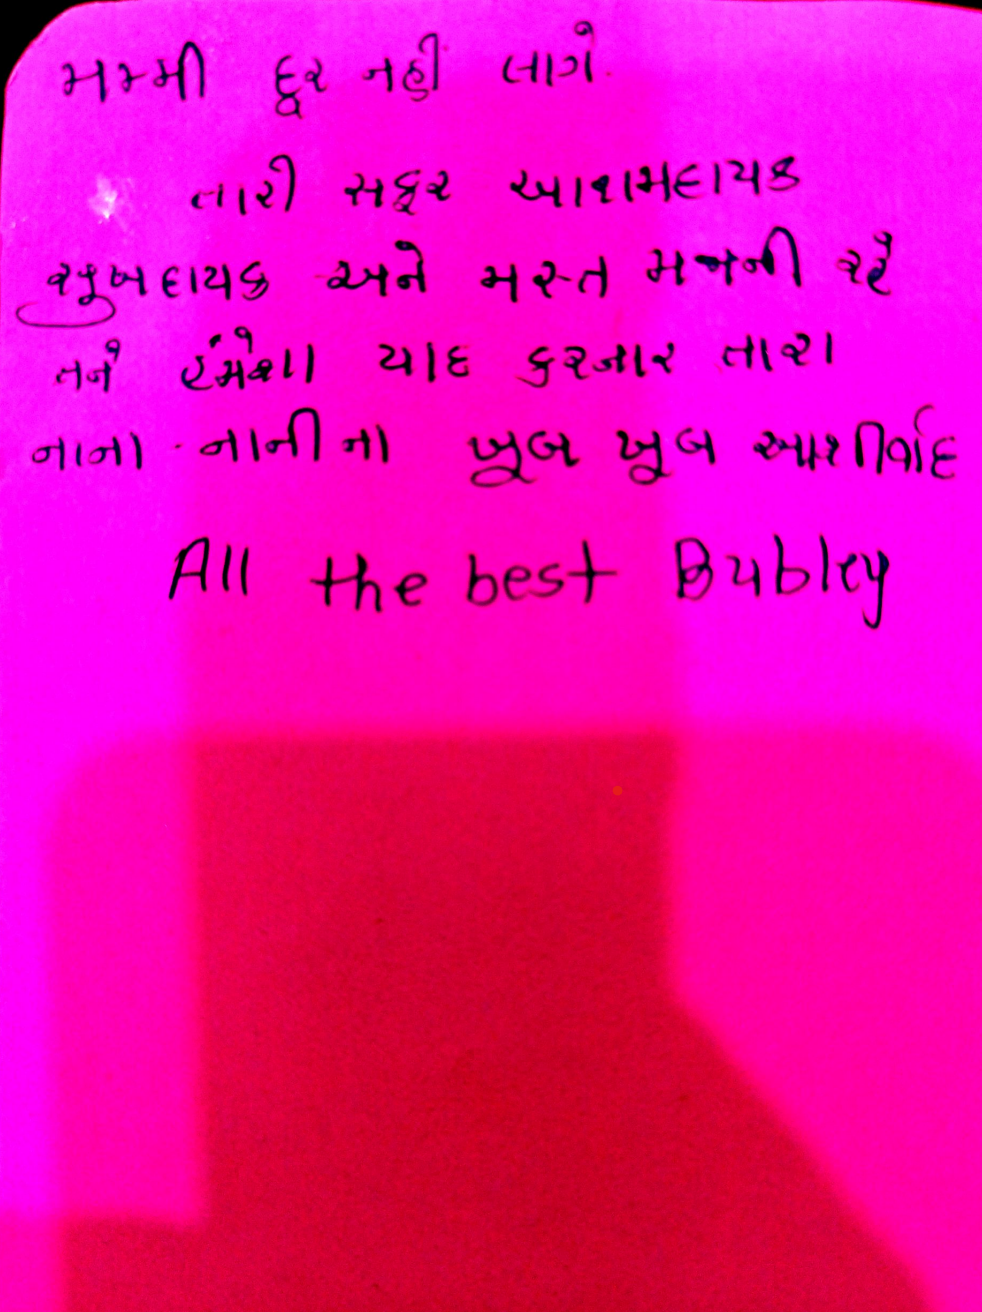 મમ્મી દૂર નહી લાગે.
તારી સફર આરામદાયક
સુખદાયક અને મસ્ત મજાની રહે
તને હંમેશા યાદ કરનાર તારા
નાના - નાની ના ખૂબ ખૂબ આશીર્વાદ
All the best Bubley